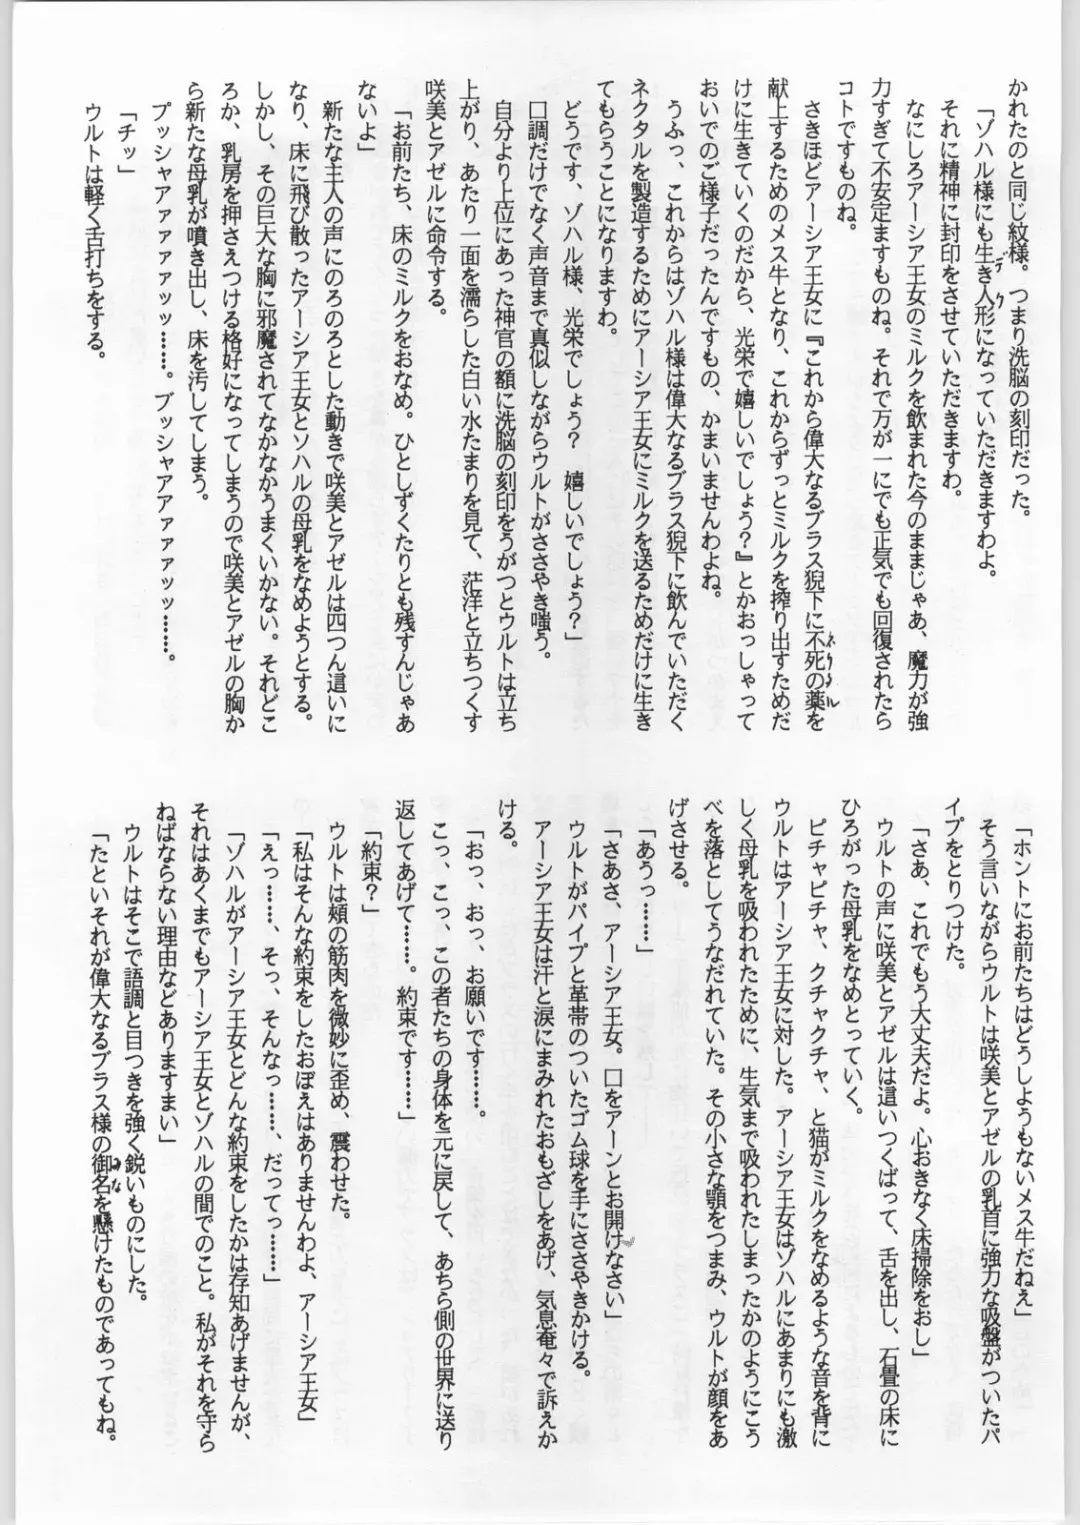 かれたのと同じ紋様。つまり洗脳の刻印だった。
「ゾハル様にも生き人形になっていただきますわよ。
それに精神に封印をさせていただきますわ。
なにしろアーシア王女のミルクを飲まれた今のままじゃあ、魔力が強
力すぎて不安定ますものね。それで万が一にでも正気でも回復されたら
コトですものね。
さきほどアーシア王女に『これから偉大なるブラス猊下に不死の薬を
献上するためのメス牛となり、これからずっとミルクを搾り出すためだ
けに生きていくのだから、光栄で嬉しいでしょう?』とかおっしゃって
おいでのご様子だったんですもの、かまいませんわよね。
うふっ、これからはゾハル様は偉大なるブラス猊下に飲んでいただく
ネクタルを製造するためにアーシア王女にミルクを送るためだけに生き
てもらうことになりますわ。
どうです、ゾハル様、光栄でしょう? 嬉しいでしょう?」
口調だけでなく声音まで真似しながらウルトがささやき嗤う。
自分より上位にあった神官の額に洗脳の刻印をうがつとウルトは立ち
上がり、あたり一面を濡らした白い水たまりを見て、茫洋と立ちつくす
咲美とアゼルに命令する。
「お前たち、床のミルクをおなめ。ひとしずくたりとも残すんじゃあ
ないよ」
新たな主人の声にのろのろとした動きで咲美とアゼルは四つん這いに
なり、床に飛び散ったアーシア王女とソハルの母乳をなめようとする。
しかし、その巨大な胸に邪魔されてなかなかうまくいかない。それどこ
ろか、乳房を押さえつける格好になってしまうので咲美とアゼルの胸か
ら新たな母乳が噴き出し、床を汚してしまう。
プッシャアァァァァッッ……。ブッシャアアァァァァッッ……。
「チッ」
ウルトは軽く舌打ちをする。
「ホントにお前たちはどうしようもないメス牛だねえ」
そう言いながらウルトは咲美とアゼルの乳首に強力な吸盤がついたパ
イプをとりつけた。
「さあ、これでもう大丈夫だよ。心おきなく床掃除をおし」
ウルトの声に咲美とアゼルは這いつくばって、舌を出し、石畳の床に
ひろがった母乳をなめとっていく。
ピチャピチャ、クチャクチャ、と猫がミルクをなめるような音を背に
ウルトはアーシア王女に対した。アーシア王女はゾハルにあまりにも激
しく母乳を吸われたために、生気まで吸われたしまったかのようにこう
べを落としてうなだれていた。その小さな顎をつまみ、ウルトが顔をあ
げさせる。
「あうっ……」
「さあさ、アーシア王女。口をアーンとお開けなさい」
ウルトがパイプと革帯のついたゴム球を手にささやきかける。
アーシア王女は汗と涙にまみれたおもざしをあげ、気息奄々で訴えか
ける。
「おっ、おっ、お願いです……。
こっ、こっ、この者たちの身体を元に戻して、あちら側の世界に送り
返してあげて……。約束です……」
「約束?」
ウルトは頬の筋肉を微妙に歪め、震わせた。
「私はそんな約束をしたおぼえはありませんわよ、アーシア王女」
「えっ……、そっ、そんなっ……、だってっ……」
「ゾハルがアーシア王女とどんな約束をしたかは存知あげませんが、
それはあくまでもアーシア王女とゾハルの間でのこと。私がそれを守ら
ねばならない理由などありますまい」
ウルトはそこで語調と目つきを強く鋭いものにした。
「たといそれが偉大なるブラス様の御名を懸けたものであってもね。